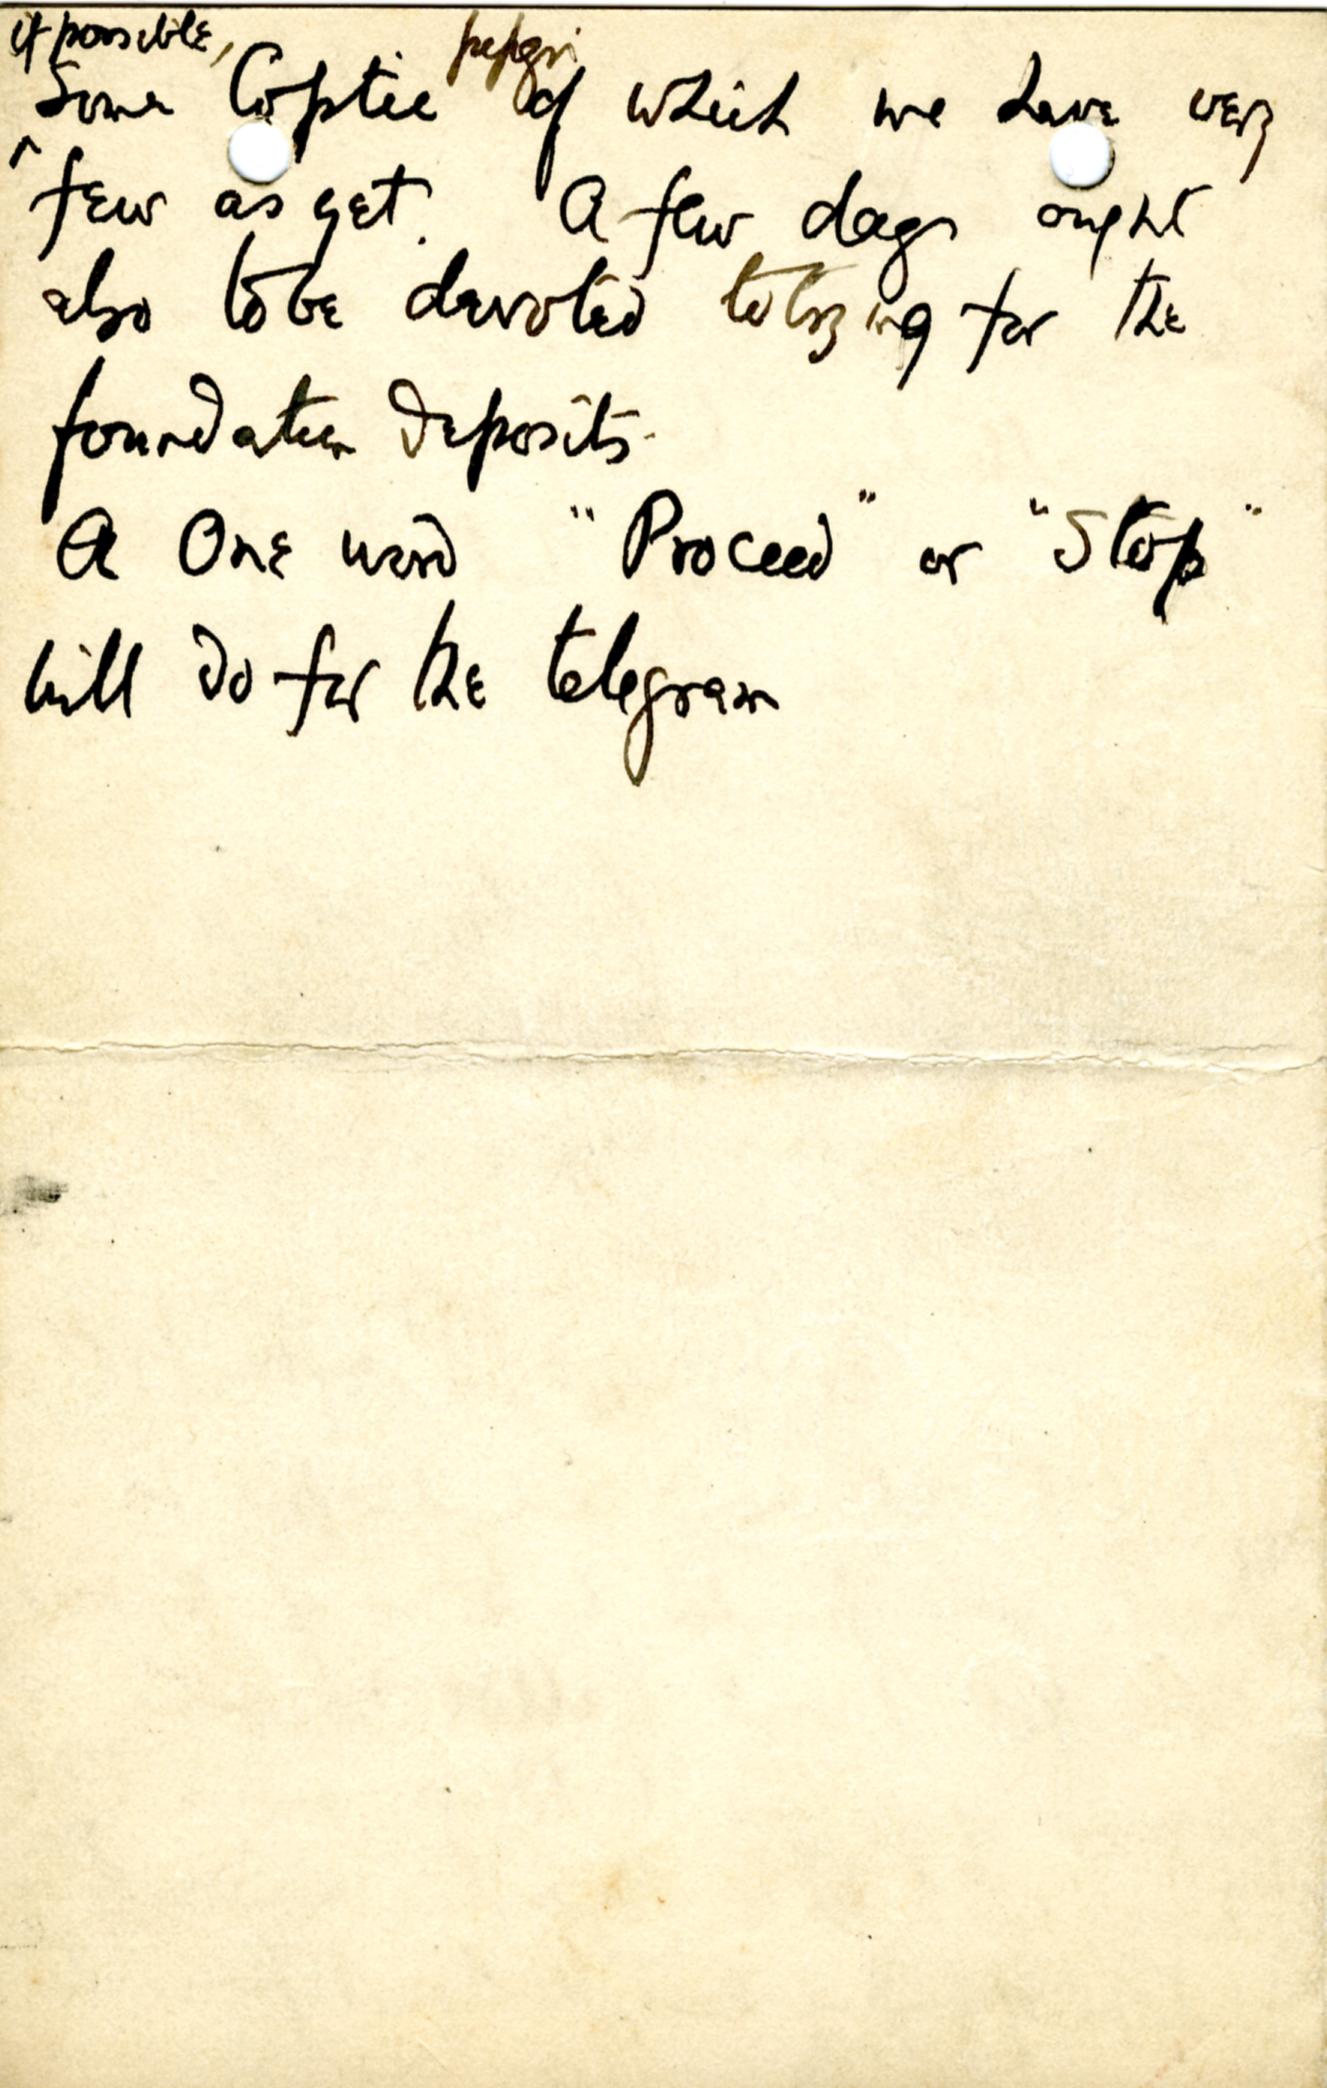 if possible,
Some Coptic papyri of which we have very
few as yet. A few days ought
also to be devoted to trying for the
foundation deposits.
A One word "Proceed" or "Stop"
will do for the telegram